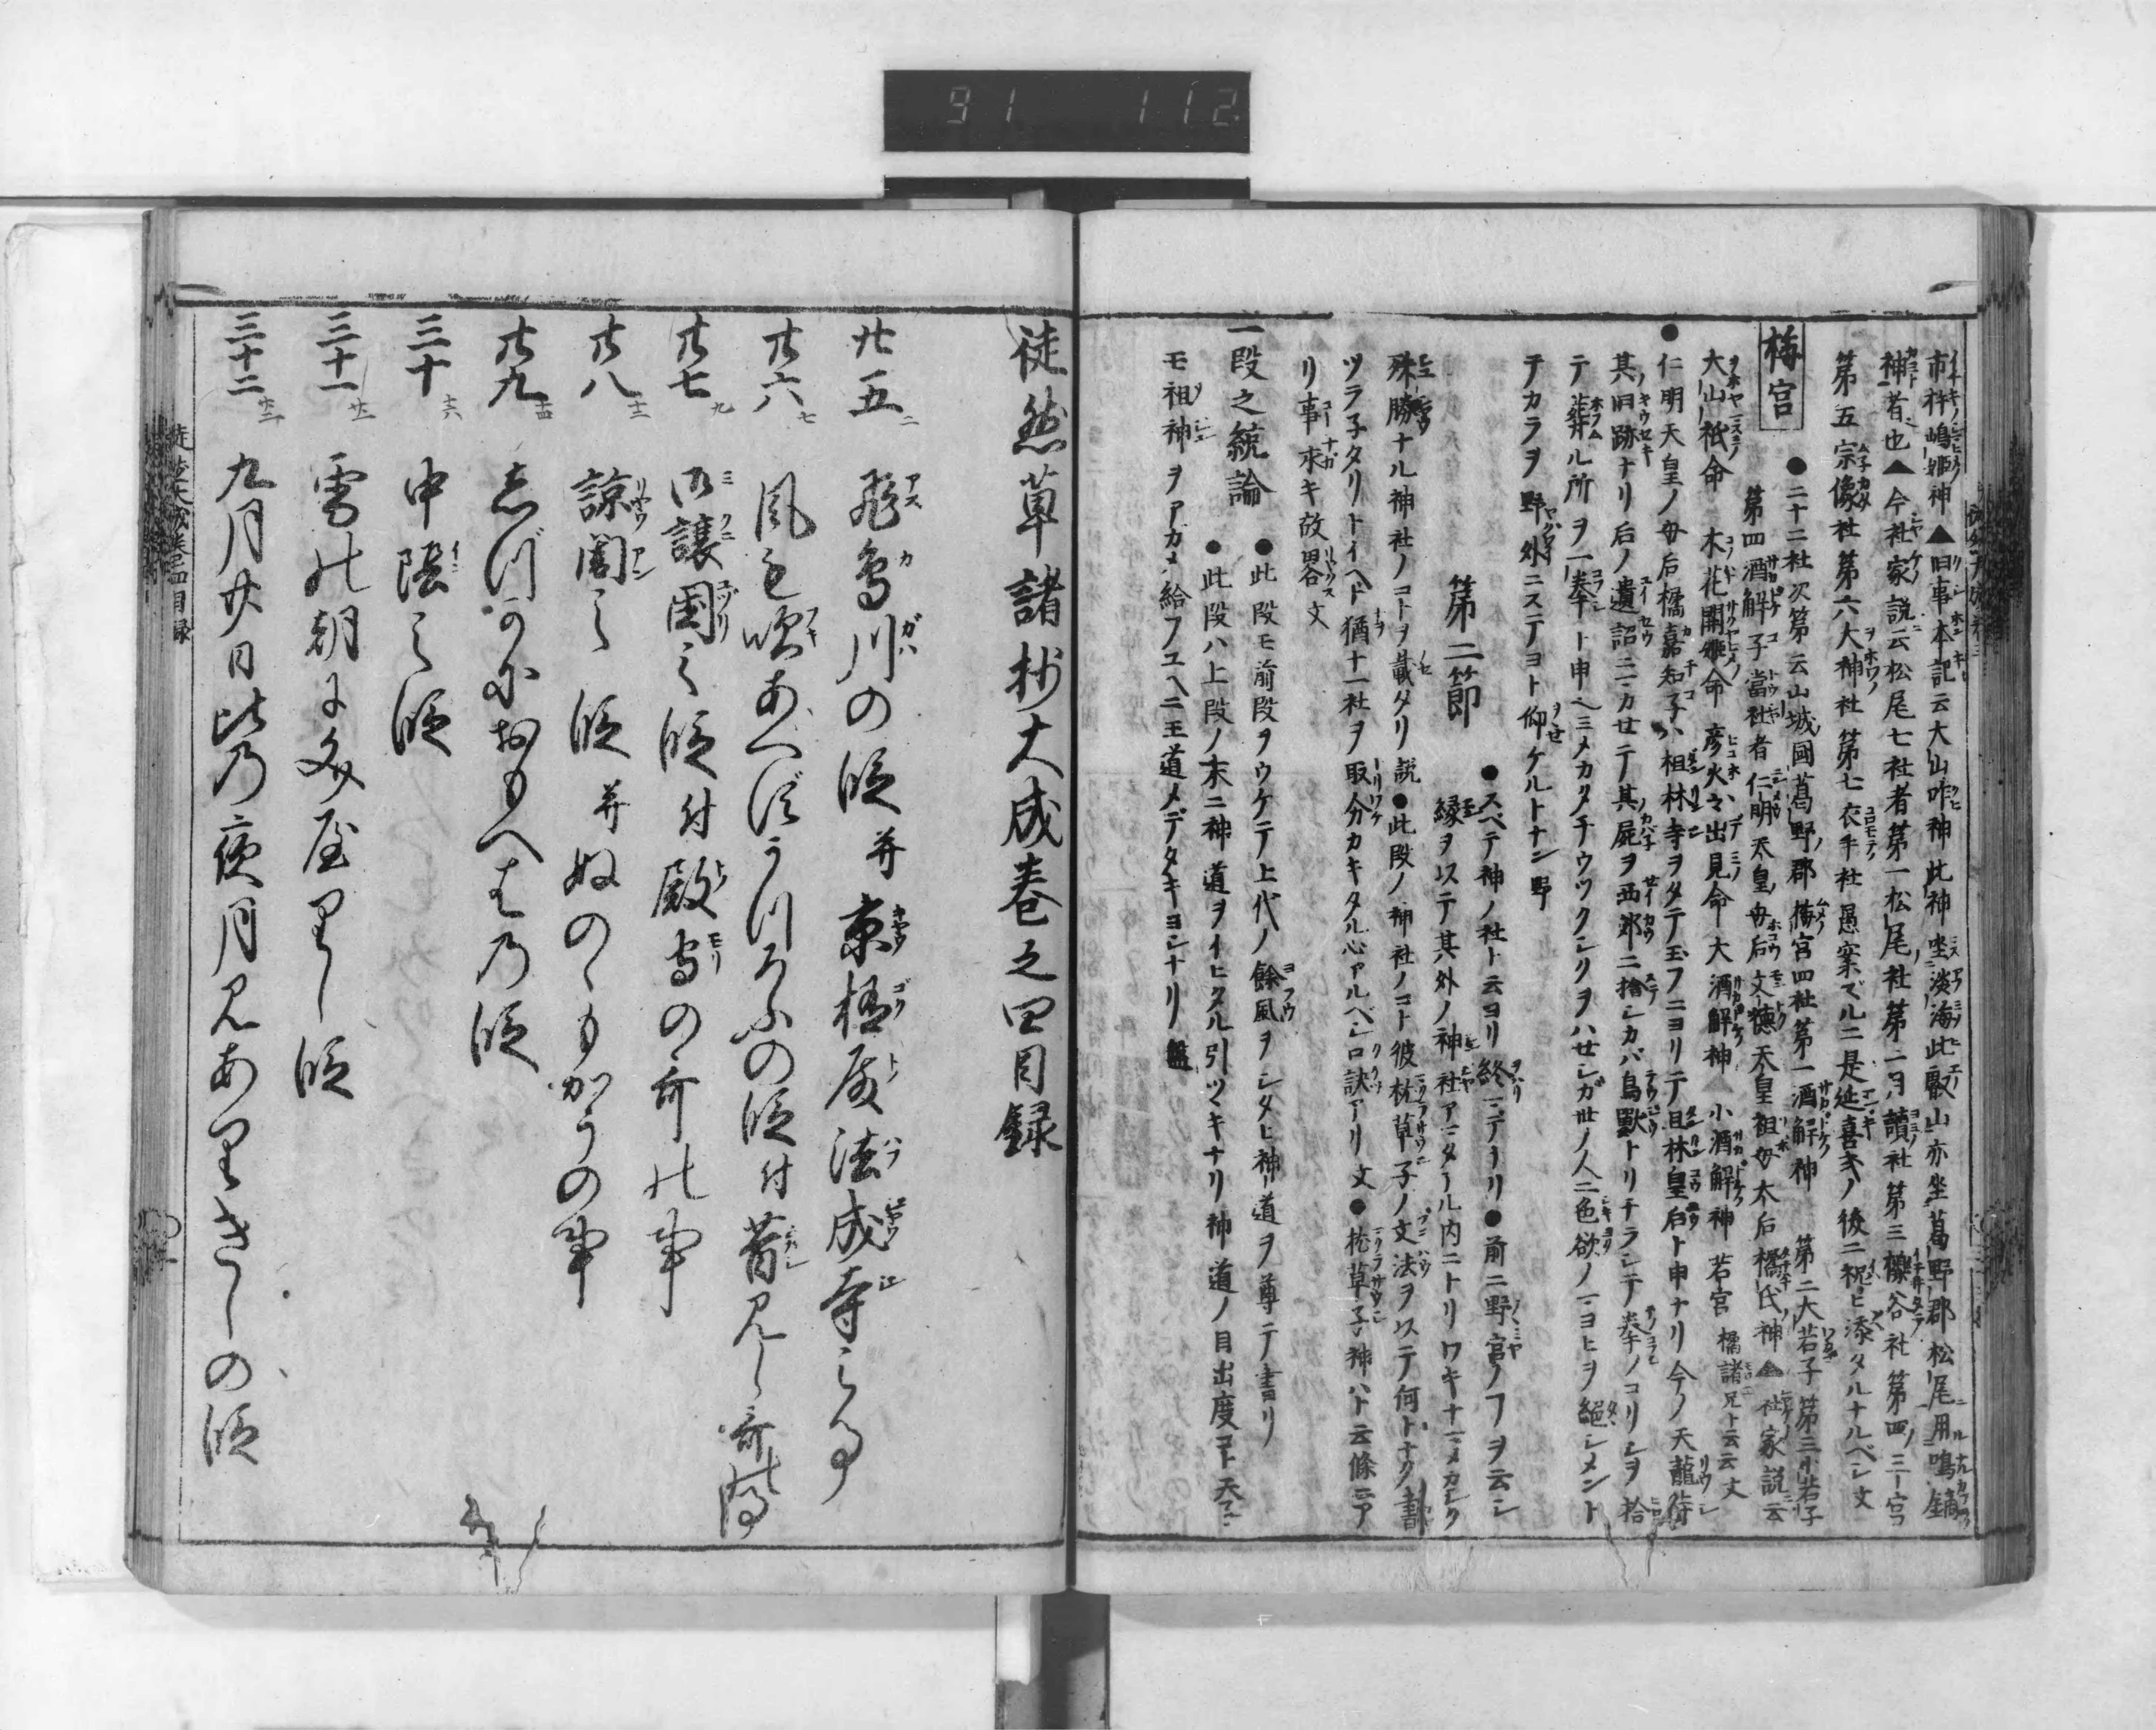 91 112
市杵嶋姫神▲旧事本記云大山咋神此神坐淡海此叡山亦坐葛野郡松尾用鳴鏑
神者也▲今社家説云松尾七社者第一松尾社第二月讀社第三櫟谷社第四ノ三ノ宮
第五宗像社第六大神社第七衣手社愚案ズルニ是延喜式ノ後ニ祝ヒ添タルナルベシ文
梅宮
●二十二社次第云山城國葛野郡梅宮四社第一酒解神 第二大若子第三小若子
第四酒解子當社者仁明天皇母后文德天皇祖母太后橘氏神▲社家説云
大山祇命 木花開姫命 彦火々出見命大酒解神▲小酒解神 若宮 橘諸兄ト云云文
●仁明天皇ノ母后橘嘉知子ハ檀林寺ヲタテ玉フニヨリテ檀林皇后ト申ナリ今ノ天龍寺
其旧跡ナリ后ノ遺詔ニマカセテ其屍ヲ西郊ニ捨シカバ鳥獣トリチラシテ拳ノコリシヲ拾
テ葬ル所ヲ一拳ト申ヘミメカタチウツクシクヲハセシガ世ノ人ニ色欲ノマヨヒヲ絕シメント
テカラヲ野外ニステヨト仰ケルトナン野
第二節
●スベテ神ノ社ト云ヨリ終マデナリ●前ニ野宮ノフヲ云シ
縁ヲ以テ其外ノ神社アマタアル内ニトリワキナマメカシク
殊勝ナル神社ノコトヲ載タリ説●此段ノ神社ノコト彼枕草子ノ文法ヲ以テ何トナク書
ツラ子タリトイヘド猶十一社ヲ取分カキタル心アルベシ口訣アリ文●枕草子神ハト云條ニア
リ事永キ故畧文
一段之統論
●此段モ前段ヲウケテ上代ノ餘風ヲシタヒ神道ヲ尊テ書リ
●此段ハ上段ノ末ニ神道ヲイヒタル引ツヾキナリ神道ノ目出度コト天子ニ
モ祖神ヲアガメ給フユヘニ王道メデタキヨシナリ盤
徒然草諸抄大成巻之四目録
廿五 二 飛鳥川の段并京極殿法成寺之事
廿六 七 風も吹あへずうつろふの段付昔見し哥
廿七 九 御譲國之段付殿守の哥の事
廿八 十三 諒闇之段并ぬのゝもかうの事
廿九 十四 しづかにおもへばの段
三十 十六 中陰之段
三十一 雪の朝に文やりし段
三十二 九月廿日比の夜月見ありきしの段
徒然大成巻四目録